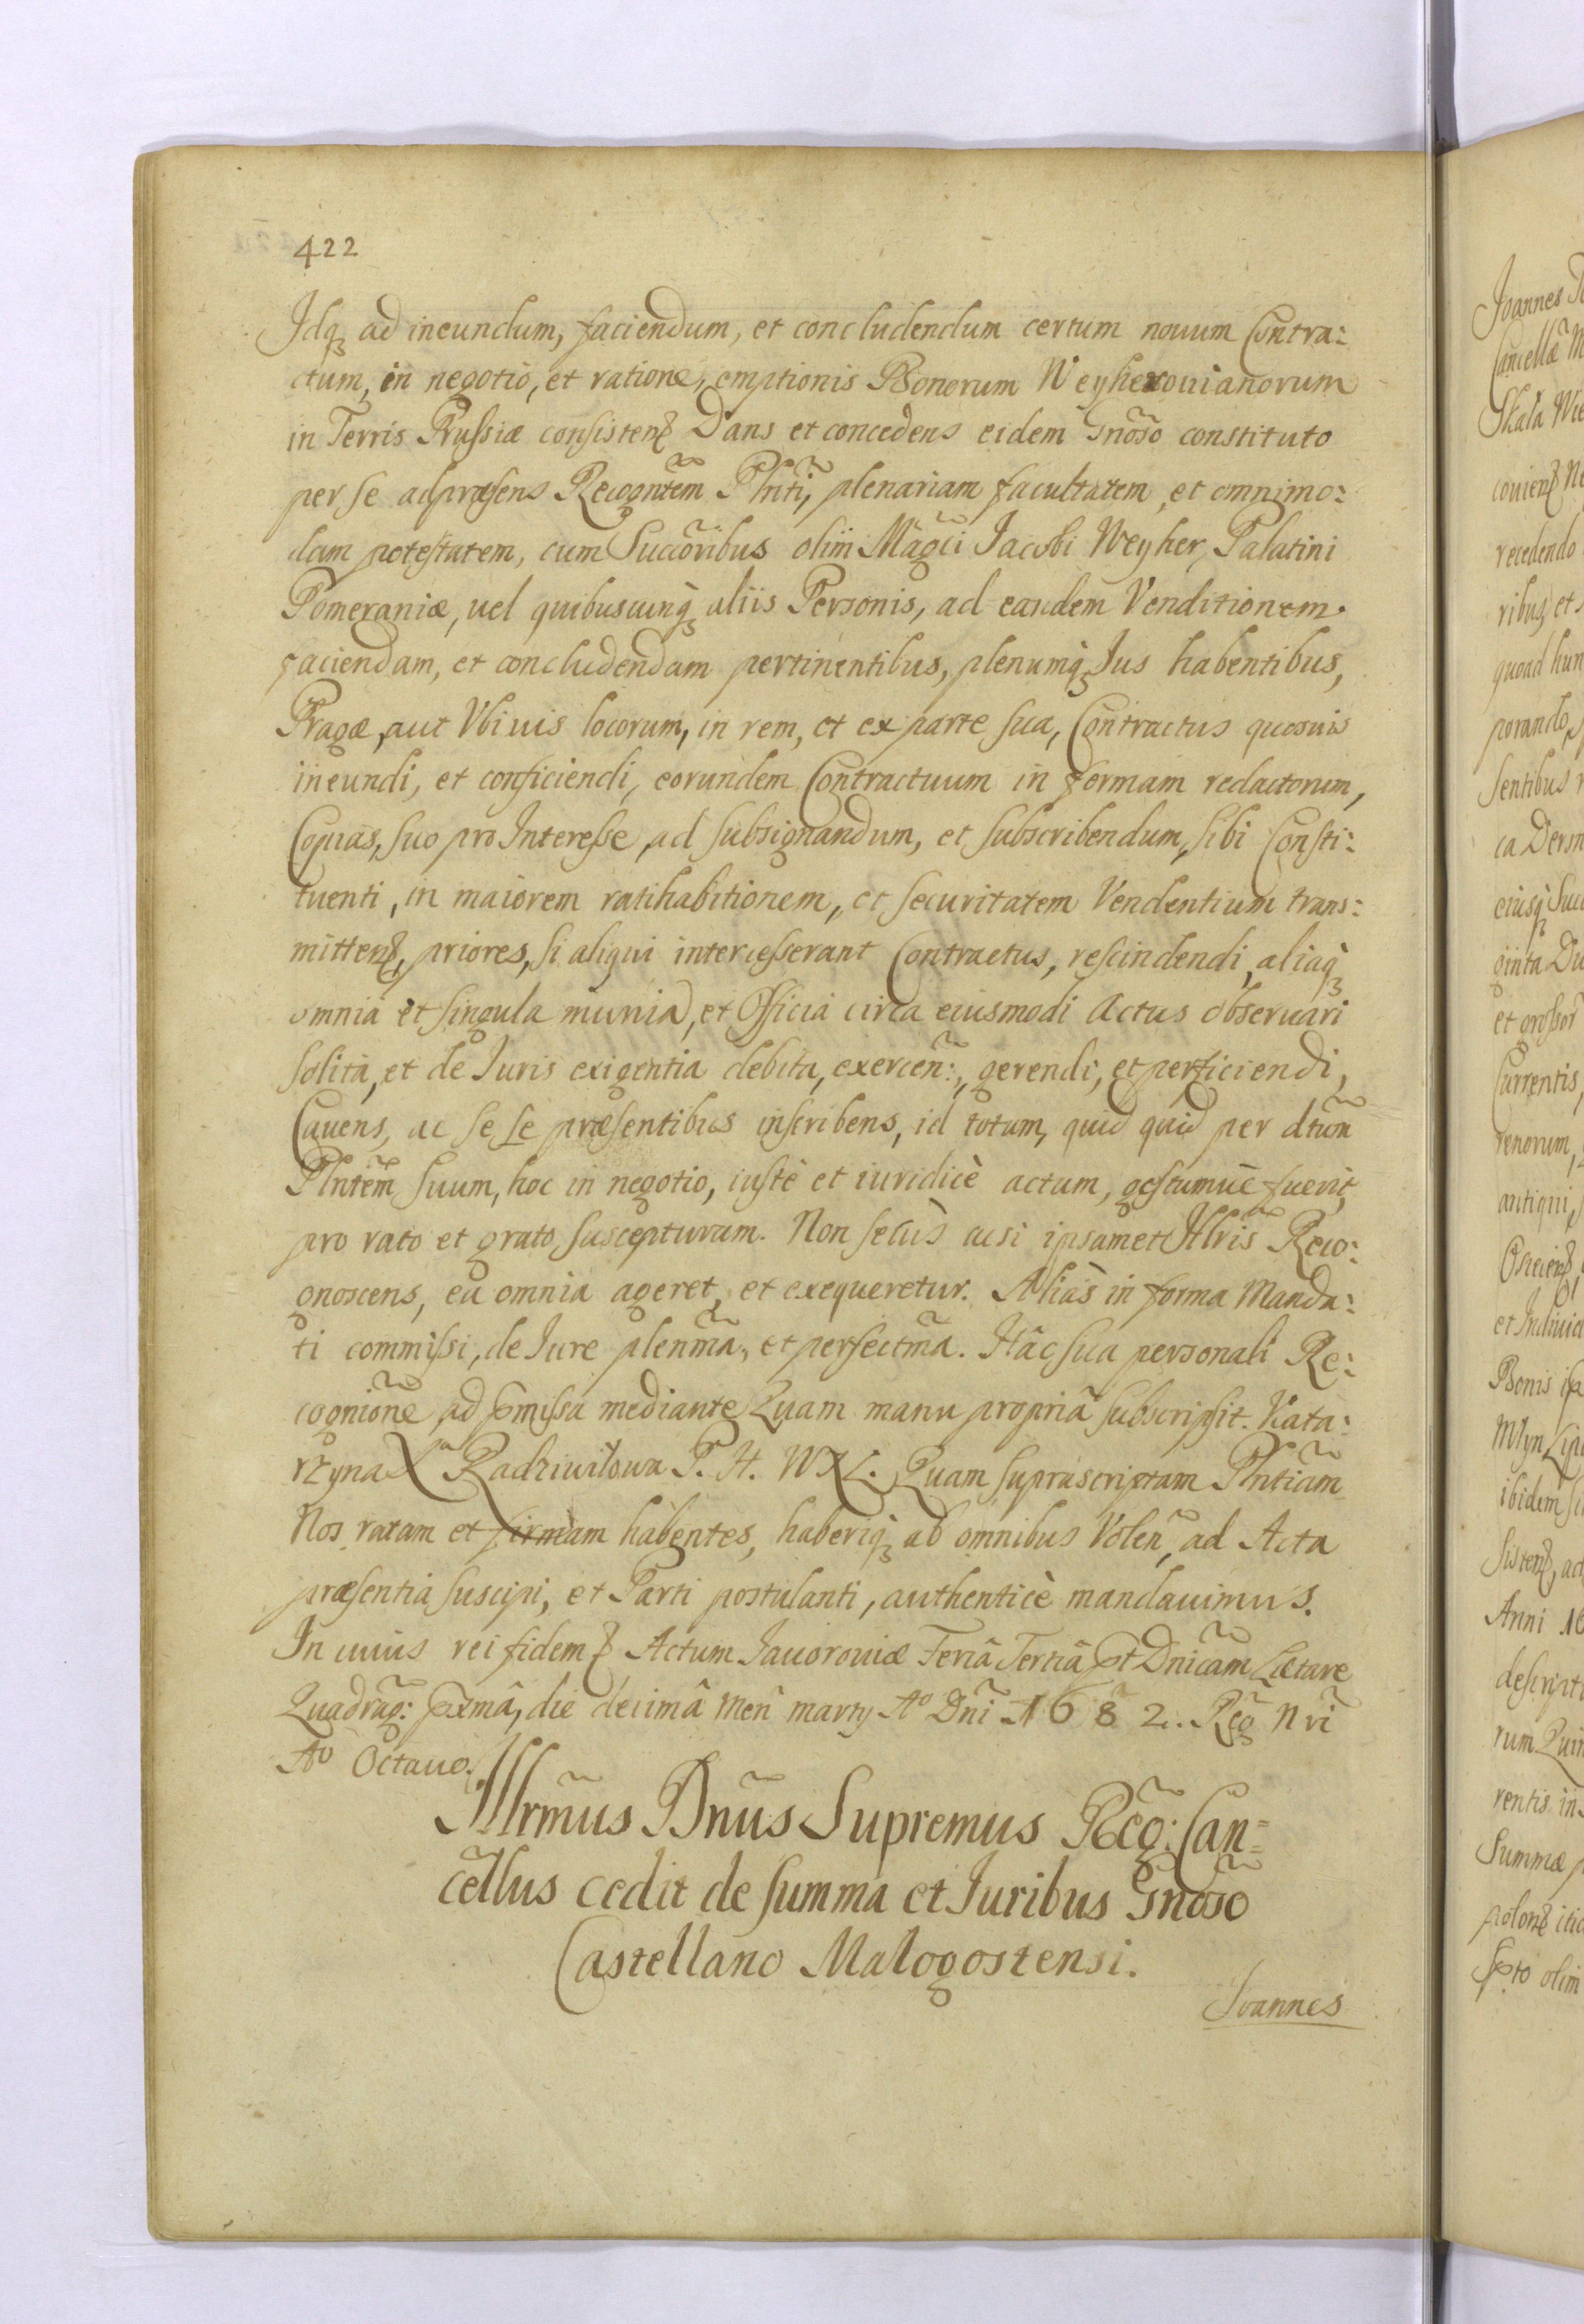 422
Idq ad ineundum, faciendum, et concludendum certum nouum Contra:
ctum, in negotio, et ratione, emptionis Bonorum Weyherouianorum
in Terris Prussiæ consisten Dans et concedens eidem Gnoso constituto
per se adpræsens Recogntem Plnti, plenariam facultatem, et omnimo:
dam potestatem, cum Succoribus olim Magci Jacobi Weyher, Palatini
Pomeraniæ, uel quibuscunq aliis Personis, ad eandem Venditionem
faciendam, et concludendam pertinentibus, plenumq Ius habentibus,
Pragæ, aut Vbiuis locorum, in rem, et ex parte sua, Contractus quosuis
ineundi, et conficiendi, eorundem Contractuum in formam redactorum,
Copias, suo pro Interesse, ad subsignandum, et subscribendum, sibi Consti:
tuenti, in maiorem ratihabitionem, et securitatem Vendentium trans:
mitten, priores, si aliqui intercesserant Contractus, rescindendi, aliaq
omnia et singula munia, et Officia circa eiusmodi Actus obseruari
solita, et de Iuris exigentia debita, exercen:, gerendi, et perficiendi,
Cauens, ac se se præsentibus inscribens, id totum, quid quid per dtum
Plntem suum, hoc in negotio, iustè et iuridicè actum, gestumuè fuerit,
pro rato et grato suscepturam. Non secùs acsi ipsamet Illris Reco:
gnoscens, ea omnia ageret, et exequeretur. Aliàs in forma Manda:
ti commissi, de Iure plenma, et perfectma. Hâc sua personali Re:
cognione ad pmissa mediante Quam manu propriâ subscripsit. Kata:
rzyna X Radziwiłowa P. H. WXL. Quam supràscriptam Plntiam
Nos ratam et firmam habentes, haberiq ab omnibus Volen, ad Acta
præsentia suscipi, et Parti postulanti, authenticè mandauimus.
In cuius rei fidem Actum Jauorouiæ Feriâ Tertiâ pt Dnicam Lætare
Quadrag: pxmâ, die decimâ Men marty Aº Dni 1682. Reg Nri
Aº Octauo.
Illrmus Dnus Supremus Reg: Can=
cellus cedit de summa et Juribus Gnoso
Castellano Małogostensi.
Joannes